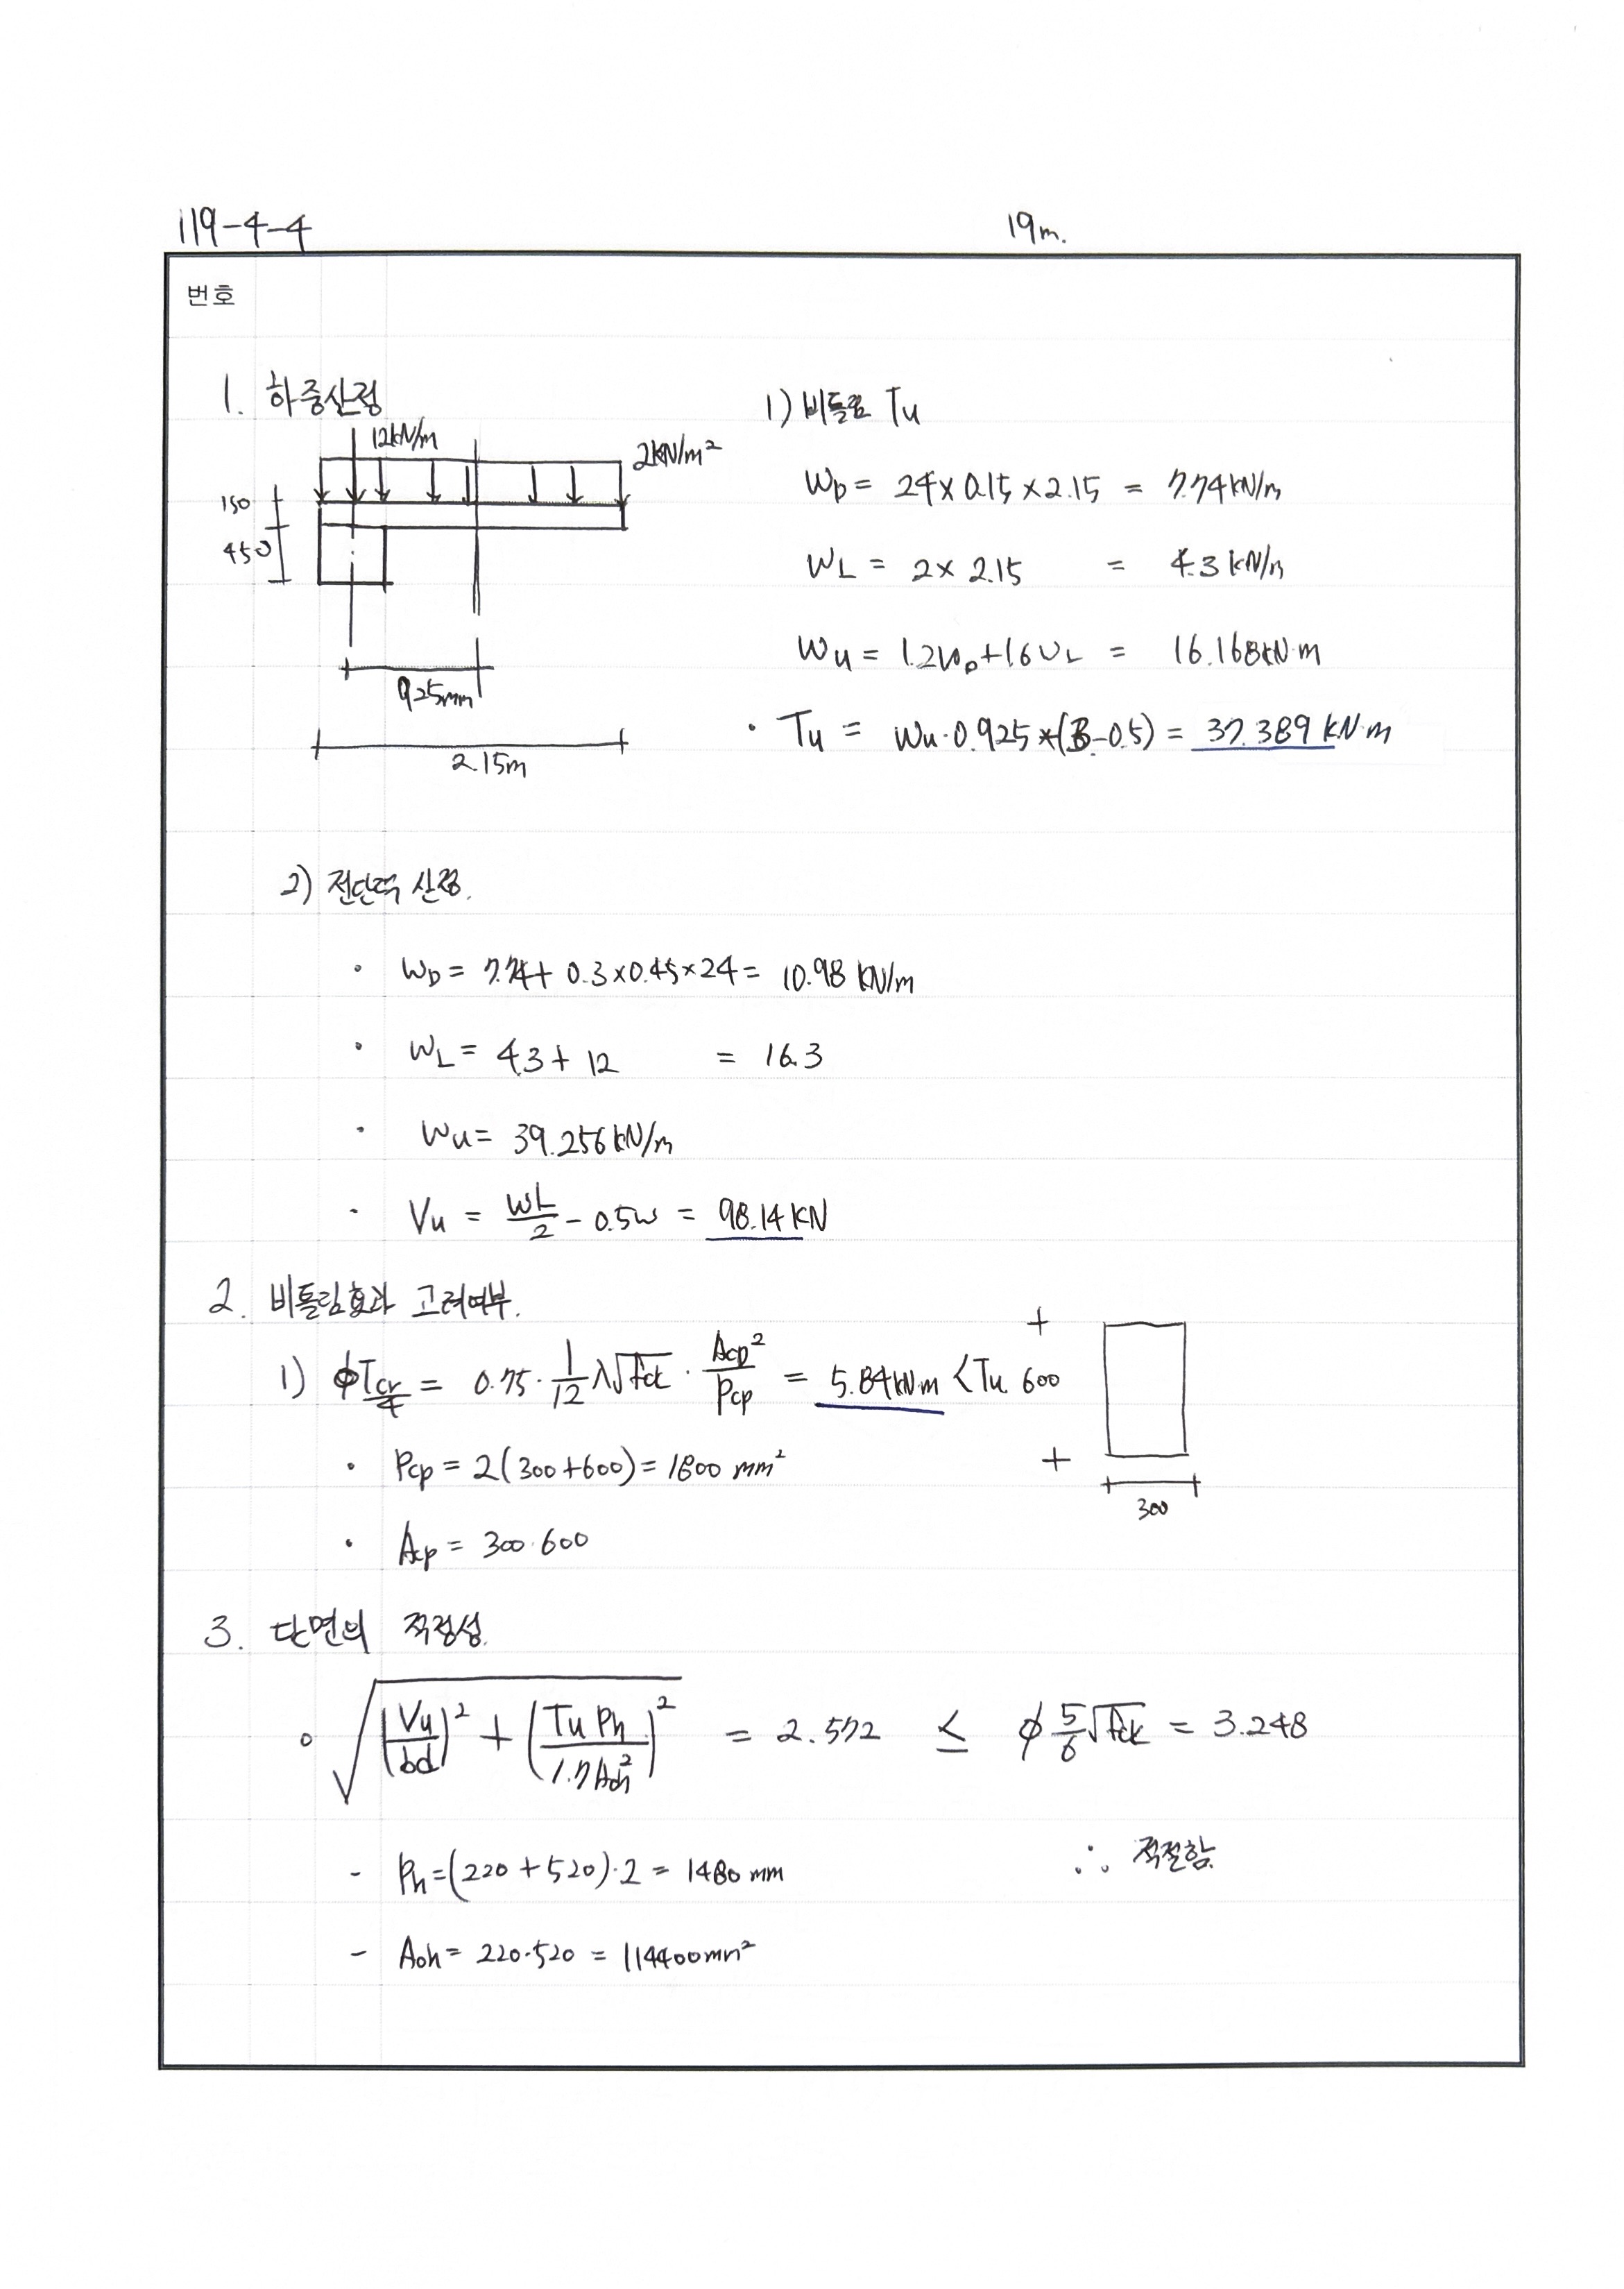 119-4-4
19m.
번호
1. 하중산정
12kN/m
2kN/m²
150
450
925mm
2.15m
1) 비틀림 Tu
W_D = 24 × 0.15 × 2.15 = 7.74 kN/m
W_L = 2 × 2.15 = 4.3 kN/m
Wu = 1.2W_D + 1.6W_L = 16.168 kN·m
· Tu = Wu · 0.925 × (3 - 0.5) = 37.389 kN·m
2) 전단력 산정.
· W_D = 7.74 + 0.3 × 0.45 × 24 = 10.98 kN/m
· W_L = 4.3 + 12 = 16.3
· Wu = 39.256 kN/m
· Vu = WL/2 - 0.5w = 98.14 kN
2. 비틀림효과 고려여부.
1) φTcr/4 = 0.75 · 1/12 λ√fck · Acp²/Pcp = 5.84 kN·m < Tu.
600
300
· Pcp = 2(300+600) = 1800 mm²
· Acp = 300·600
3. 단면의 적정성.
∘ √((Vu/bd)² + (Tu Ph/1.7Aoh²)²) = 2.572 ≤ φ 5/6 √fck = 3.248
∴ 적절함.
- Ph = (220 + 520)·2 = 1480 mm
- Aoh = 220·520 = 114400mm²